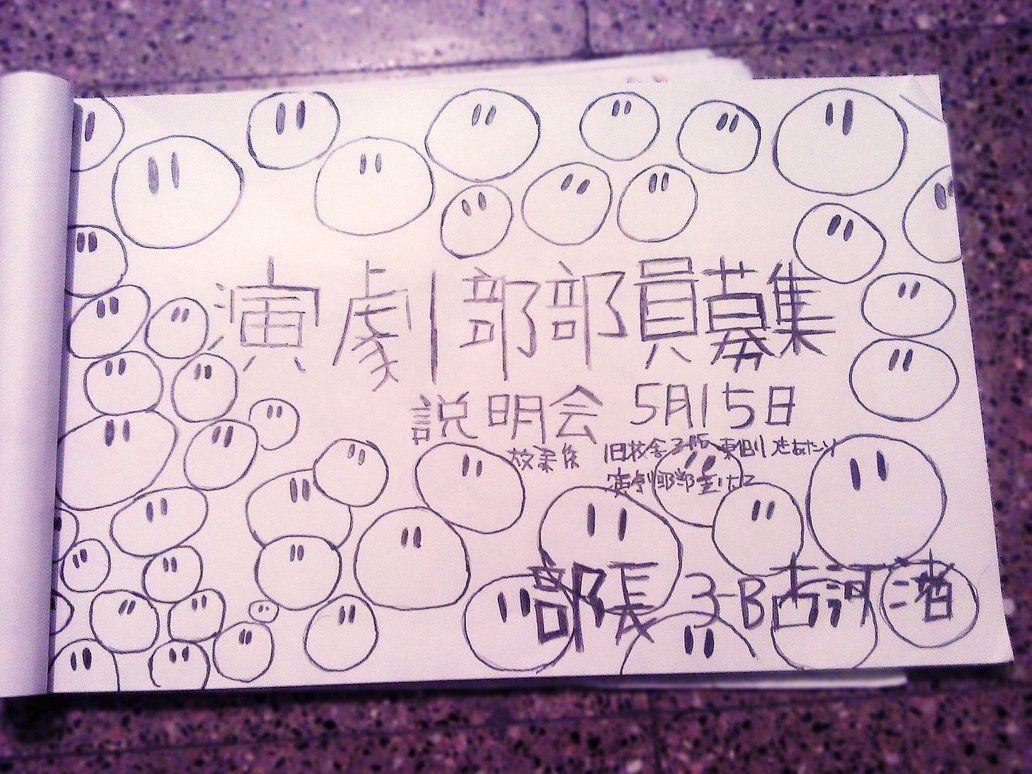 演劇部部員募集
説明会 5月15日
放課後 旧校舎3階 東側 つきあたり
演劇部部室にて
部長 3-B古河渚